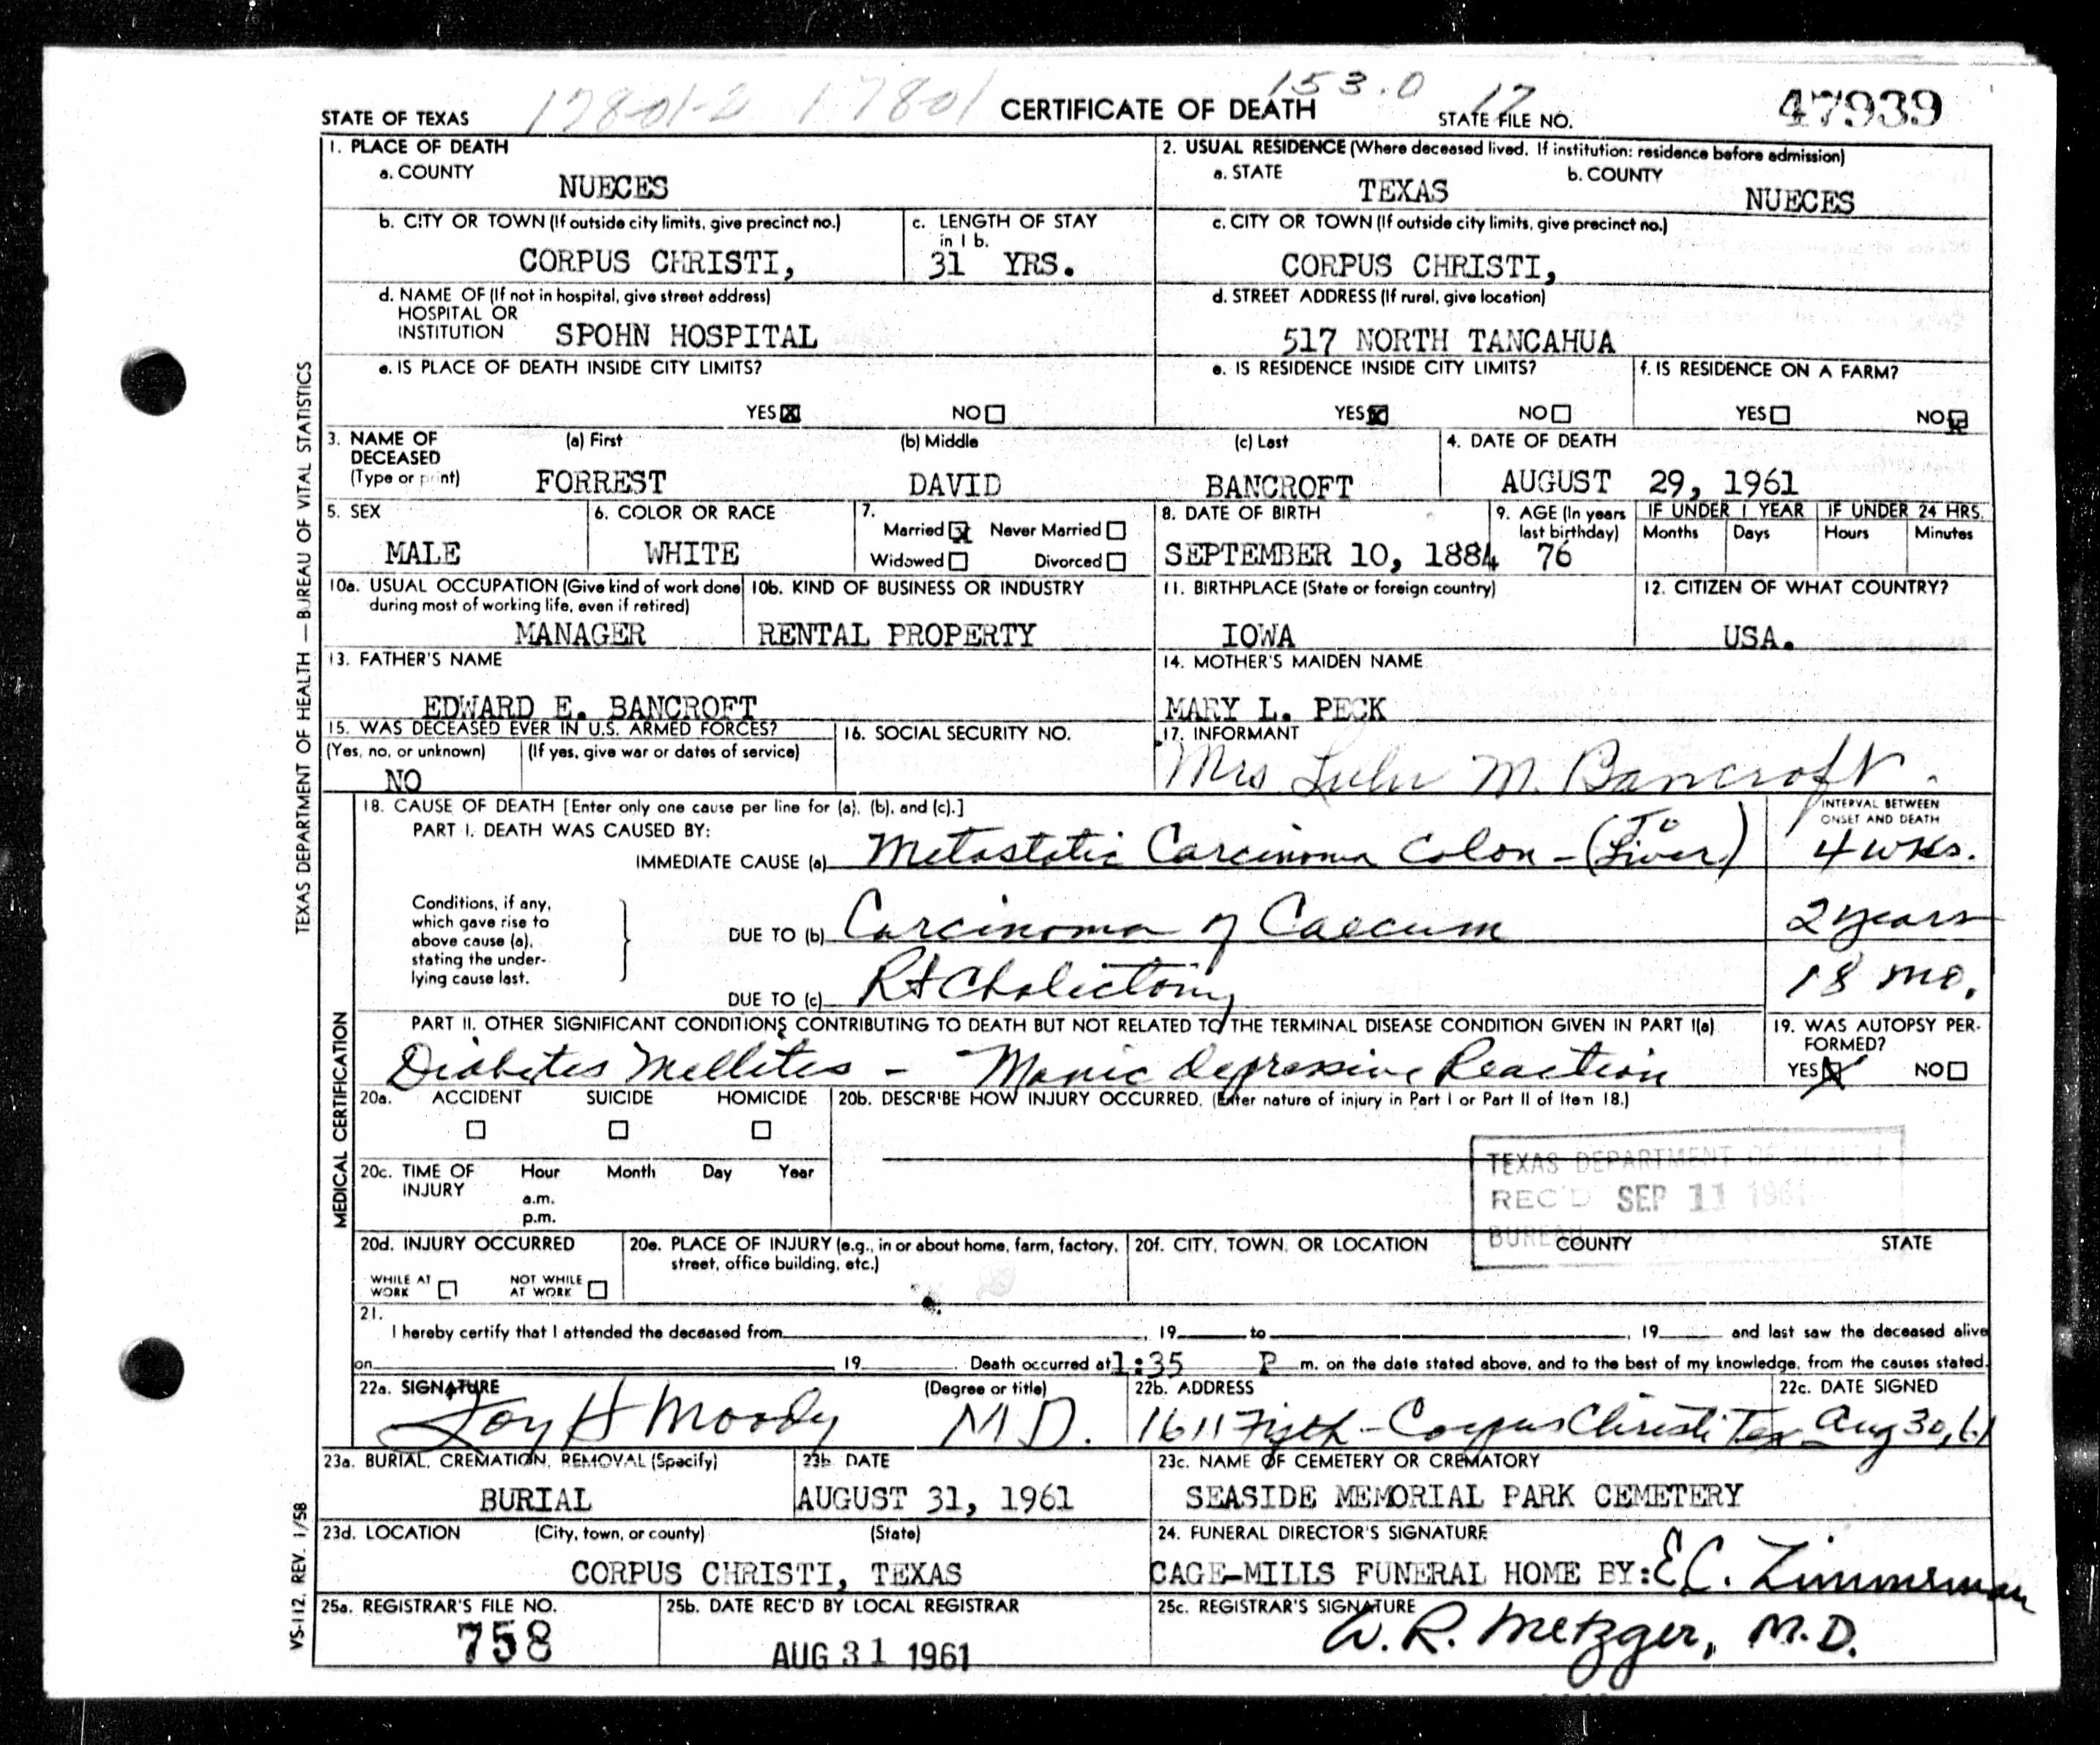 17801-2 17801 153.0 17
STATE OF TEXAS CERTIFICATE OF DEATH STATE FILE NO. 47939
1. PLACE OF DEATH 2. USUAL RESIDENCE (Where deceased lived. If institution: residence before admission)
a. COUNTY NUECES a. STATE TEXAS b. COUNTY NUECES
b. CITY OR TOWN (If outside city limits, give precinct no.) c. LENGTH OF STAY in 1 b. c. CITY OR TOWN (If outside city limits, give precinct no.)
CORPUS CHRISTI, 31 YRS. CORPUS CHRISTI,
d. NAME OF (If not in hospital, give street address) d. STREET ADDRESS (If rural, give location)
HOSPITAL OR
INSTITUTION SPOHN HOSPITAL 517 NORTH TANCAHUA
e. IS PLACE OF DEATH INSIDE CITY LIMITS? e. IS RESIDENCE INSIDE CITY LIMITS? f. IS RESIDENCE ON A FARM?
YES☒ NO☐ YES☒ NO☐ YES☐ NO☒
3. NAME OF DECEASED (Type or print) (a) First (b) Middle (c) Last 4. DATE OF DEATH
FORREST DAVID BANCROFT AUGUST 29, 1961
5. SEX 6. COLOR OR RACE 7. Married ☒ Never Married ☐ 8. DATE OF BIRTH 9. AGE (In years last birthday) IF UNDER 1 YEAR IF UNDER 24 HRS.
Months Days Hours Minutes
MALE WHITE Widowed ☐ Divorced ☐ SEPTEMBER 10, 1884 76
10a. USUAL OCCUPATION (Give kind of work done during most of working life, even if retired) 10b. KIND OF BUSINESS OR INDUSTRY 11. BIRTHPLACE (State or foreign country) 12. CITIZEN OF WHAT COUNTRY?
MANAGER RENTAL PROPERTY IOWA USA.
13. FATHER'S NAME 14. MOTHER'S MAIDEN NAME
EDWARD E. BANCROFT MARY L. PECK
15. WAS DECEASED EVER IN U.S. ARMED FORCES? 16. SOCIAL SECURITY NO. 17. INFORMANT
(Yes, no, or unknown) (If yes, give war or dates of service)
NO Mrs Lulu M. Bancroft
18. CAUSE OF DEATH [Enter only one cause per line for (a), (b), and (c).] INTERVAL BETWEEN ONSET AND DEATH
PART I. DEATH WAS CAUSED BY:
IMMEDIATE CAUSE (a) Metastatic Carcinoma Colon - (To Liver) 4 wks.
Conditions, if any, which gave rise to above cause (a), stating the underlying cause last.
DUE TO (b) Carcinoma of Caecum 2 years
DUE TO (c) Rt Cholectomy 18 mo.
PART II. OTHER SIGNIFICANT CONDITIONS CONTRIBUTING TO DEATH BUT NOT RELATED TO THE TERMINAL DISEASE CONDITION GIVEN IN PART I(a) 19. WAS AUTOPSY PERFORMED?
Diabetes Mellites - Manic depressive Reaction YES☒ NO☐
20a. ACCIDENT SUICIDE HOMICIDE 20b. DESCRIBE HOW INJURY OCCURRED. (Enter nature of injury in Part I or Part II of Item 18.)
☐ ☐ ☐
20c. TIME OF INJURY Hour Month Day Year
a.m.
p.m.
TEXAS DEPARTMENT OF HEALTH
REC'D SEP 11 1961
BUREAU
20d. INJURY OCCURRED 20e. PLACE OF INJURY (e.g., in or about home, farm, factory, street, office building, etc.) 20f. CITY, TOWN, OR LOCATION COUNTY STATE
WHILE AT WORK ☐ NOT WHILE AT WORK ☐
21.
I hereby certify that I attended the deceased from , 19 to , 19 and last saw the deceased alive
on 19 . Death occurred at 1:35 P m. on the date stated above, and to the best of my knowledge, from the causes stated.
22a. SIGNATURE (Degree or title) 22b. ADDRESS 22c. DATE SIGNED
Joy H Moody M D. 1611 Fifth - Corpus Christi Tex Aug 30, 61
23a. BURIAL, CREMATION, REMOVAL (Specify) 23b. DATE 23c. NAME OF CEMETERY OR CREMATORY
BURIAL AUGUST 31, 1961 SEASIDE MEMORIAL PARK CEMETERY
23d. LOCATION (City, town, or county) (State) 24. FUNERAL DIRECTOR'S SIGNATURE
CORPUS CHRISTI, TEXAS CAGE-MILLS FUNERAL HOME BY: E.C. Zimmerman
25a. REGISTRAR'S FILE NO. 25b. DATE REC'D BY LOCAL REGISTRAR 25c. REGISTRAR'S SIGNATURE
758 AUG 31 1961 W. R. Metzger, M.D.
TEXAS DEPARTMENT OF HEALTH — BUREAU OF VITAL STATISTICS
MEDICAL CERTIFICATION
VS-112, REV. 1/58